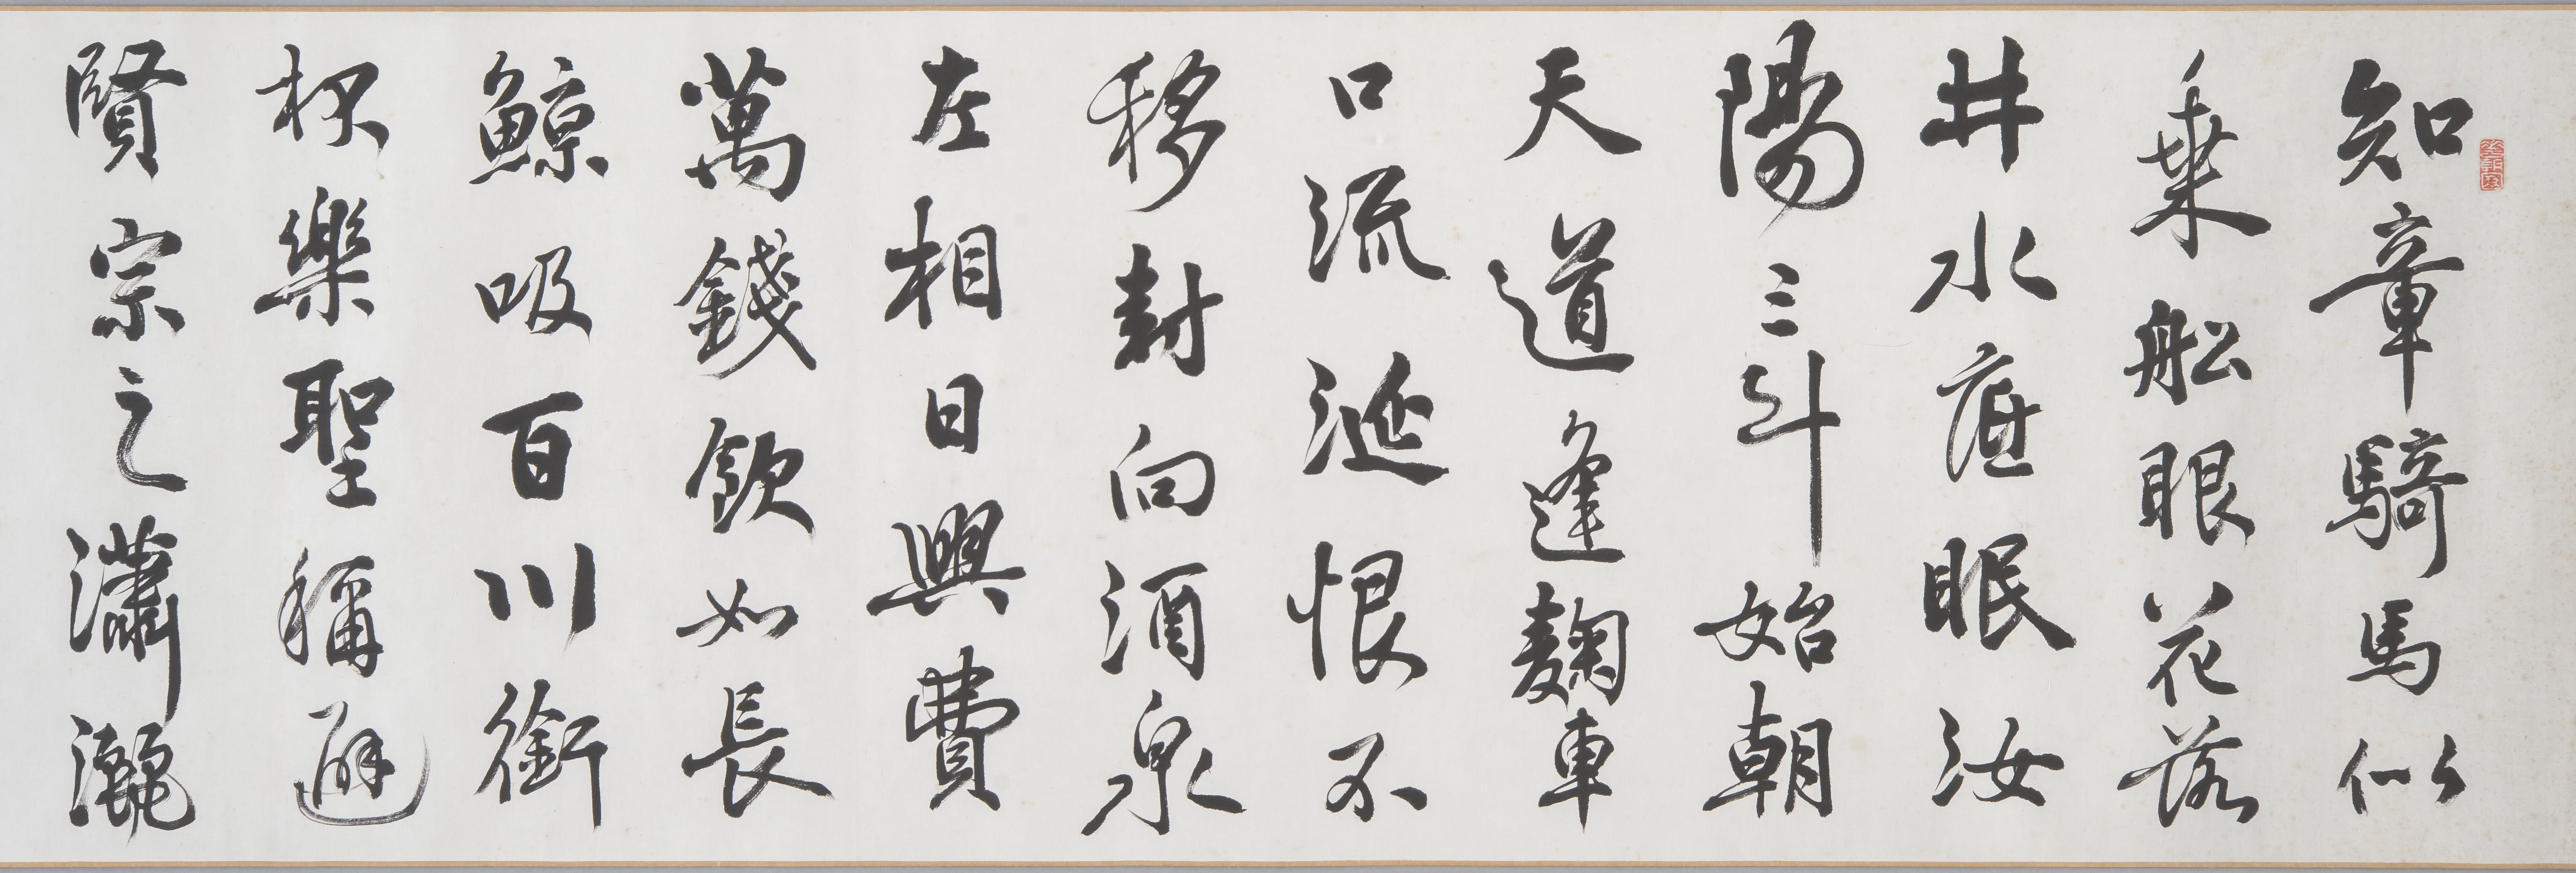 知章騎馬似
乗船眼花落
井水底眠汝
陽三斗始朝
天道逢麹車
口流涎恨不
移封向酒泉
左相日興費
萬錢飲如長
鯨吸百川銜
杯樂聖稱避
賢宗之瀟灑